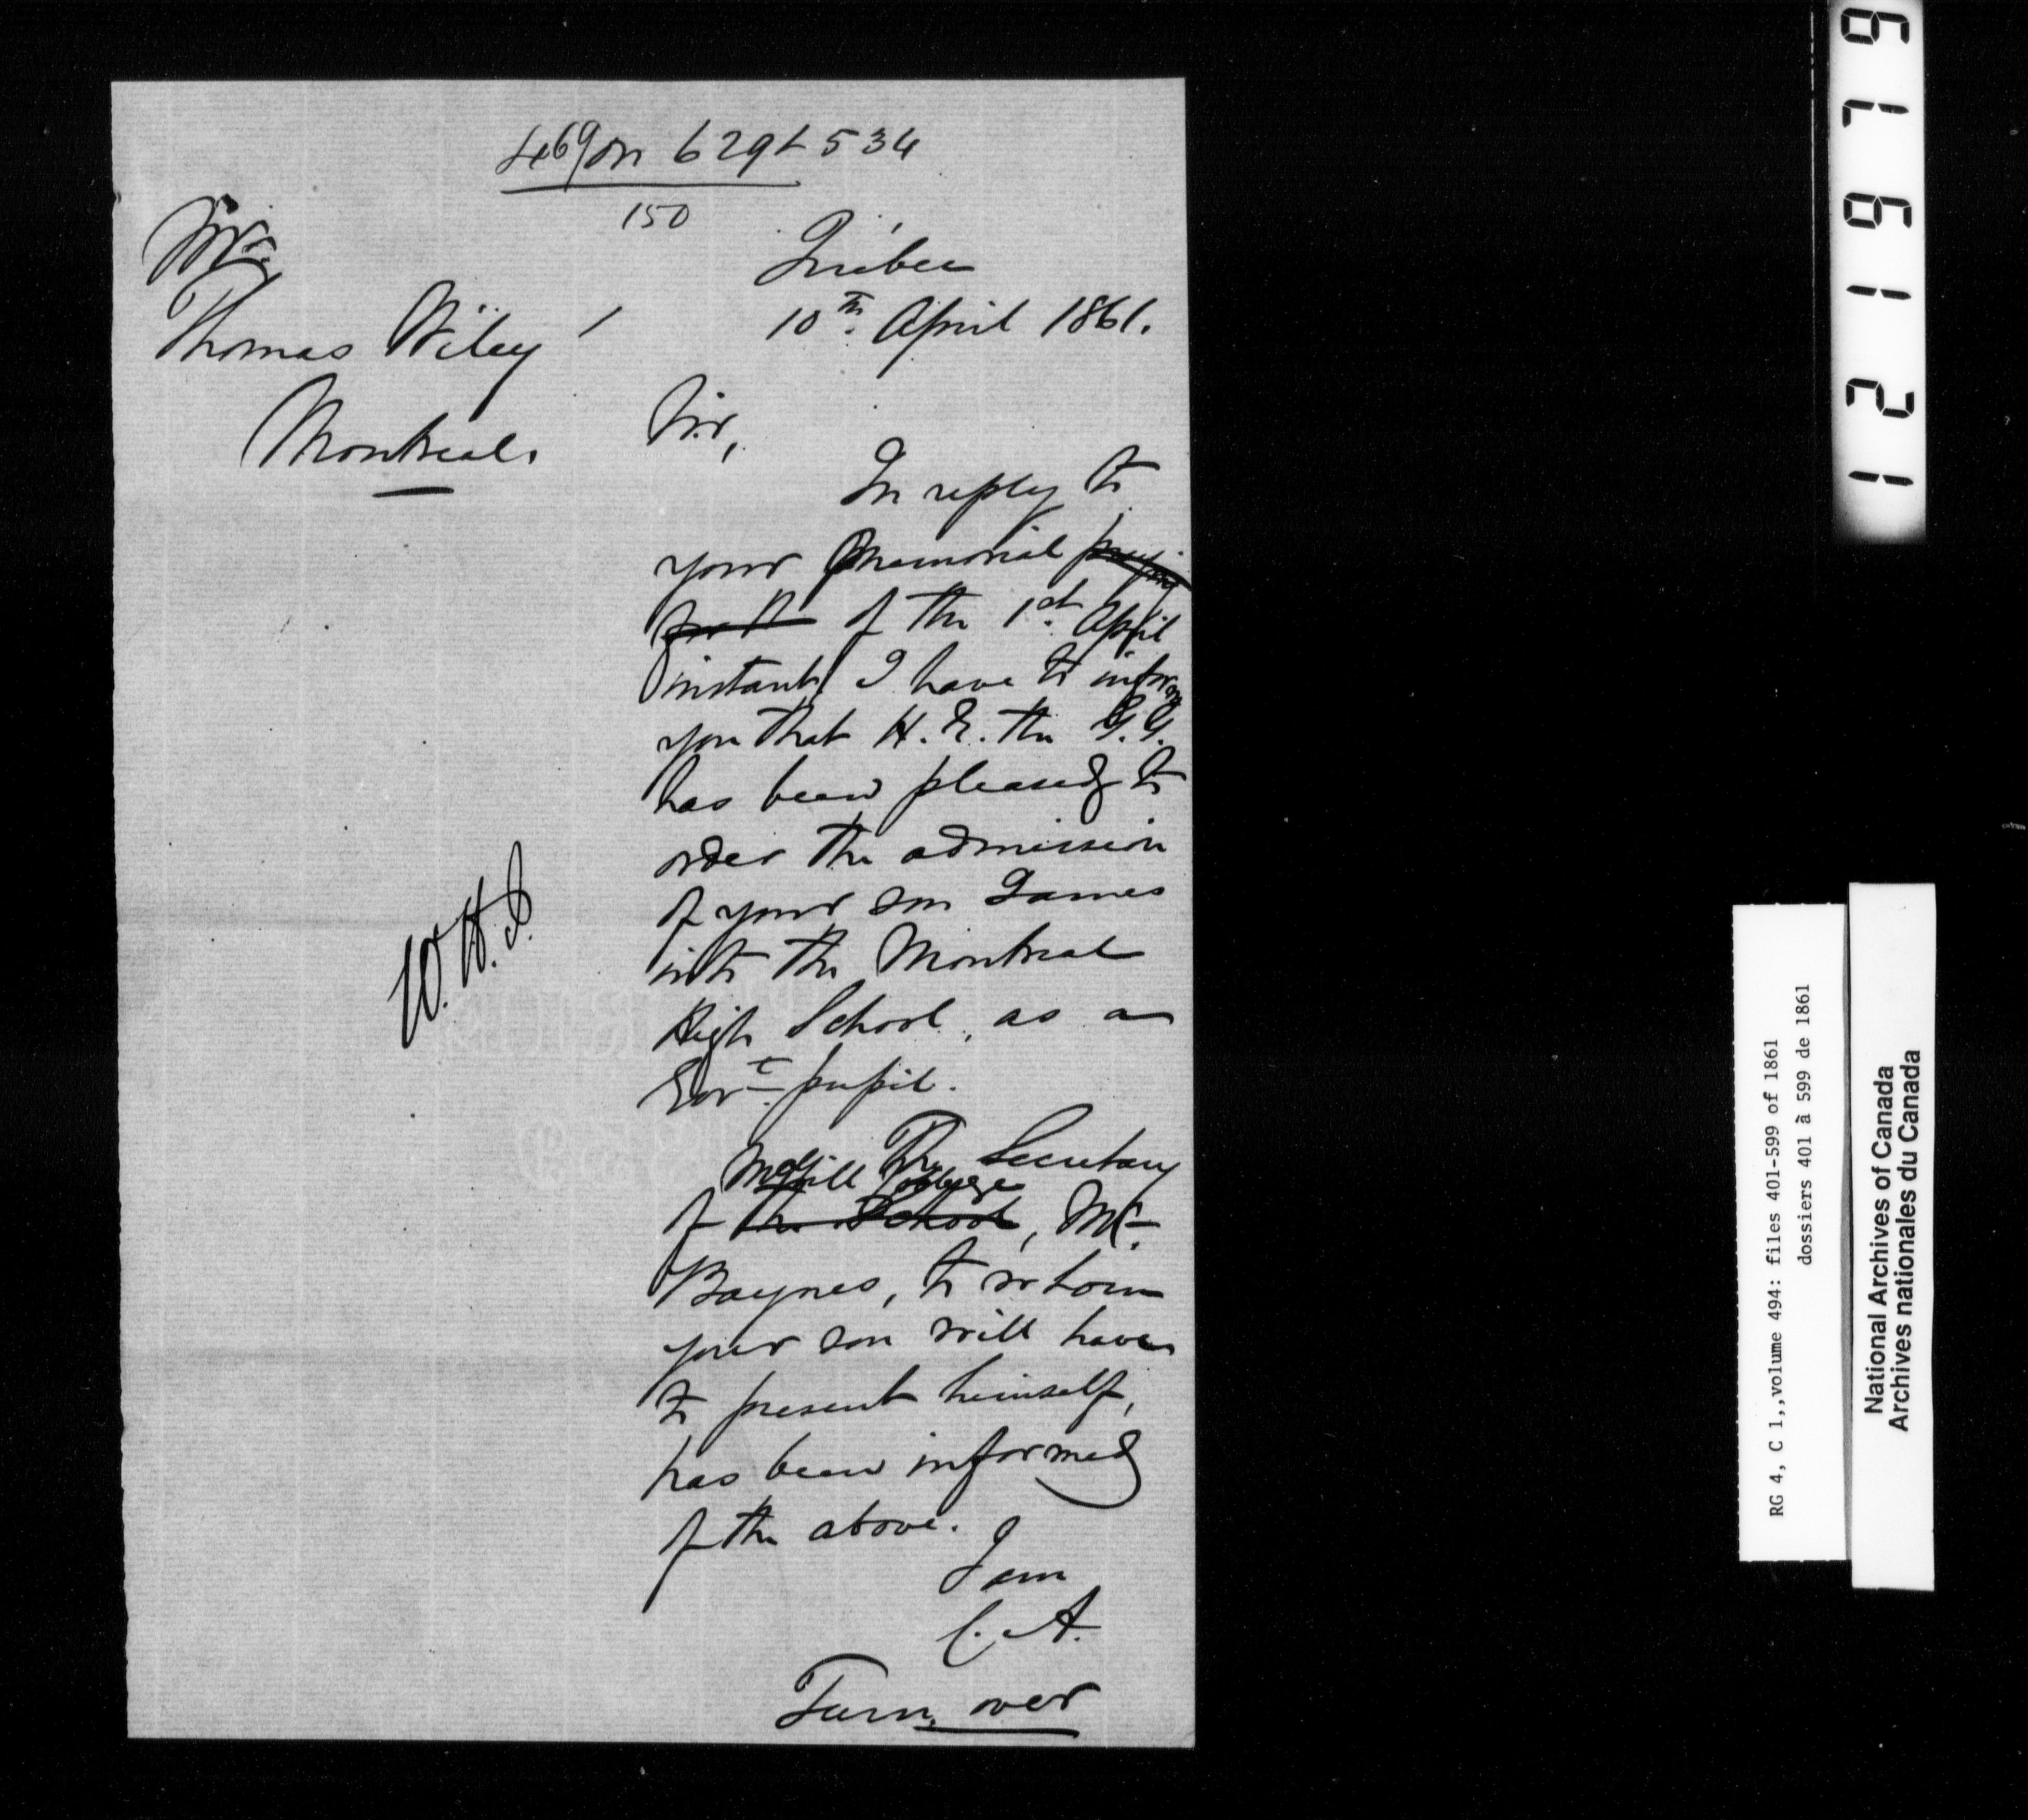 469 on 629 & 534
150
Quebec
10th. April 1861.
Thomas Wiley
Montreal.
Sir,
In reply to
your Memorial praying
for th of the 1st. April
instant, I have to inform
you that H. E. the G. G.
has been pleased to
order the admission
of your son James
into the Montreal
High School, as a
Govt. pupil.
The Secretary
McGill College
of the School, Mr.
Baynes, to whom
your son will have
to present himself,
has been informed
of the above.
I am
C. A.
Turn over
W. H. J.
121979
RG 4, C 1,,volume 494: files 401-599 of 1861
dossiers 401 à 599 de 1861
National Archives of Canada
Archives nationales du Canada